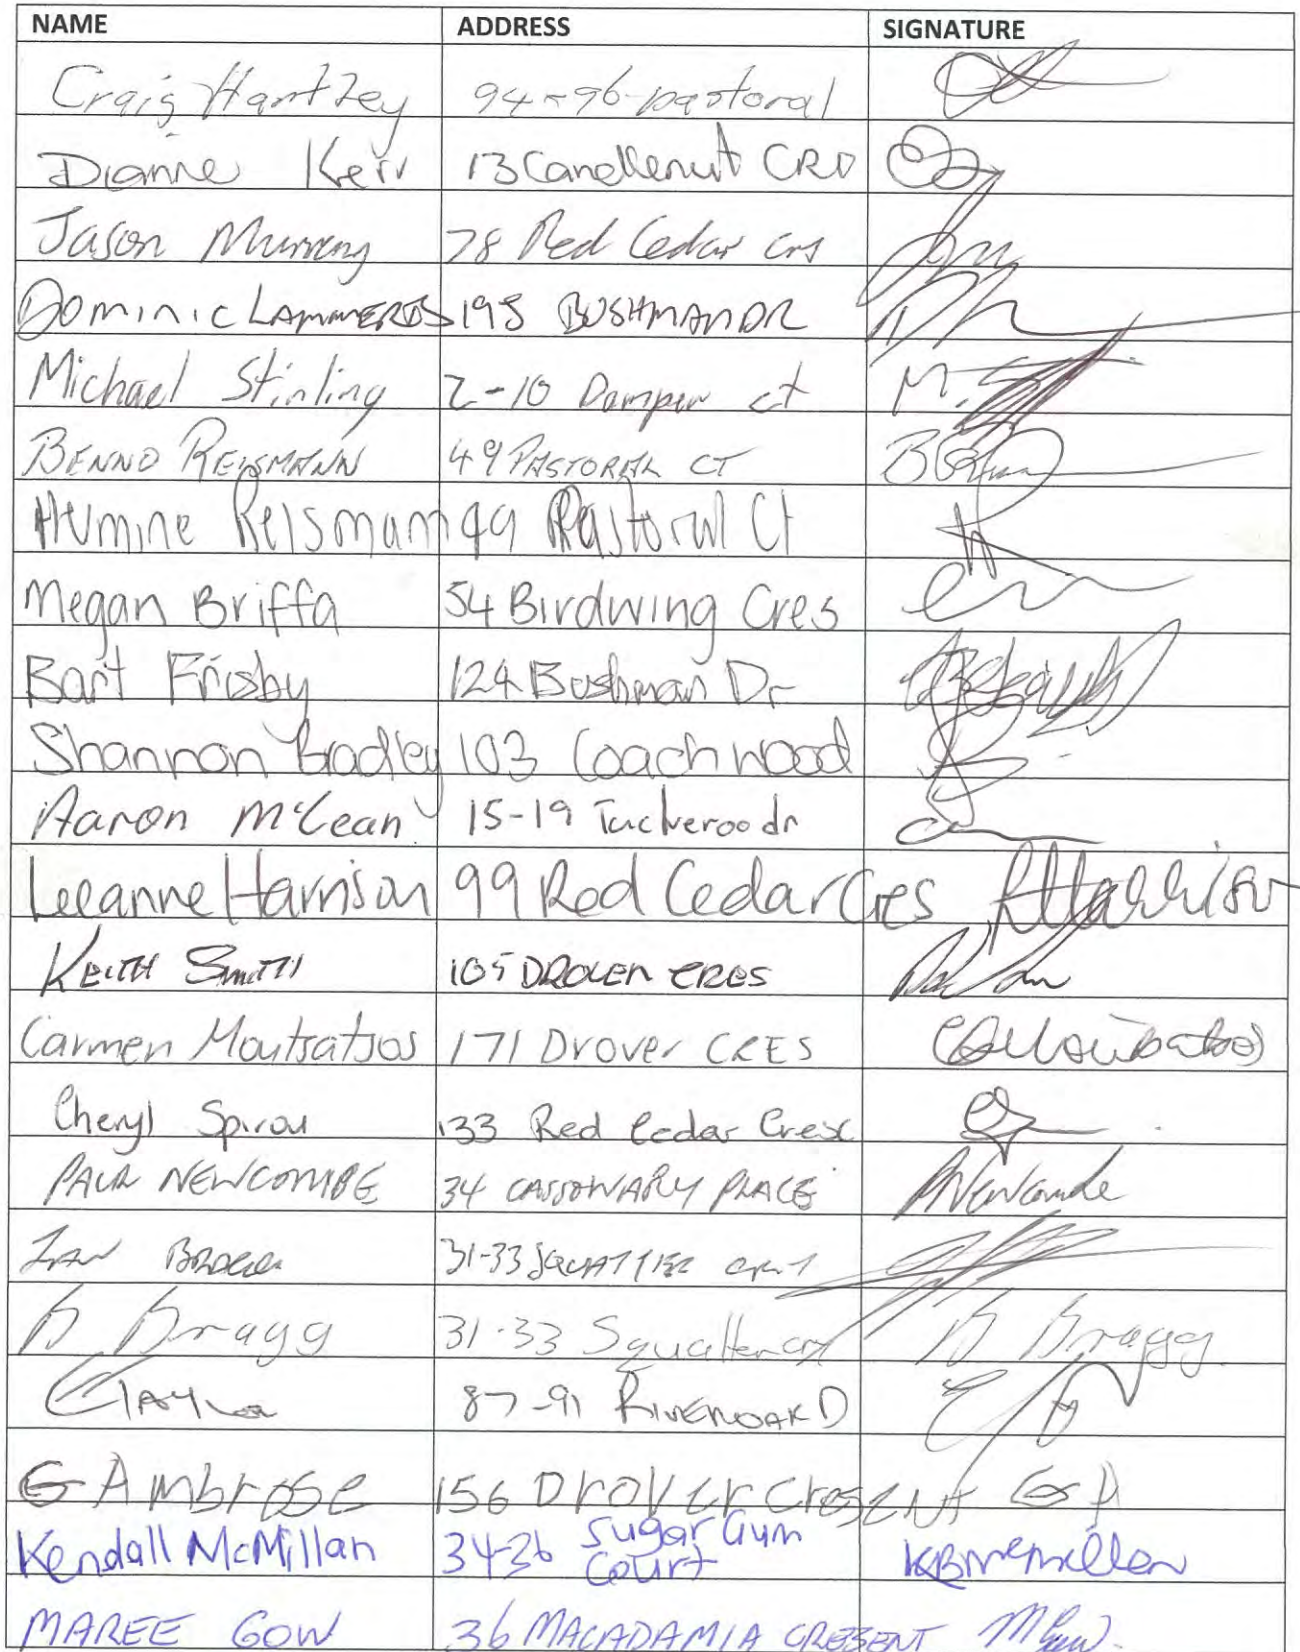 NAME ADDRESS SIGNATURE
Craig Hartley 94-96 pastoral
Dianne Kerr 13 Candlenut CRD
Jason Murray 78 Red Cedar Crs
DOMINIC LAMMERDS 195 BUSHMAN DR
Michael Stirling 2-10 Damper ct M.
BENNO REISMANN 49 PASTORAL CT
Reismann 49 Pastoral Ct
Megan Briffa 54 Birdwing Cres
Bart Frisby 124 Bushman Dr
Shannon Bradley 103 Coachwood
Aaron McLean 15-19 Tuckeroo dr
Leeanne Harrison 99 Red Cedar Cres Harrison
KEITH SMITH 105 DROVER CRES
Carmen Moutsatsos 171 Drover CRES
Cheryl Spirou 133 Red Cedar Cresc
PAUL NEWCOMBE 34 CASSOWARY PLACE PNewcombe
IAN 31-33 SQUATTER
B Bragg 31-33 Squatter B Bragg
87-91 RIVEROAK D
G Ambrose 156 Drover CresENt G A
Kendall McMillan 34-36 Sugar Gum
Court KBMcMillan
MAREE GOW 36 MACADAMIA CRESENT MGow.